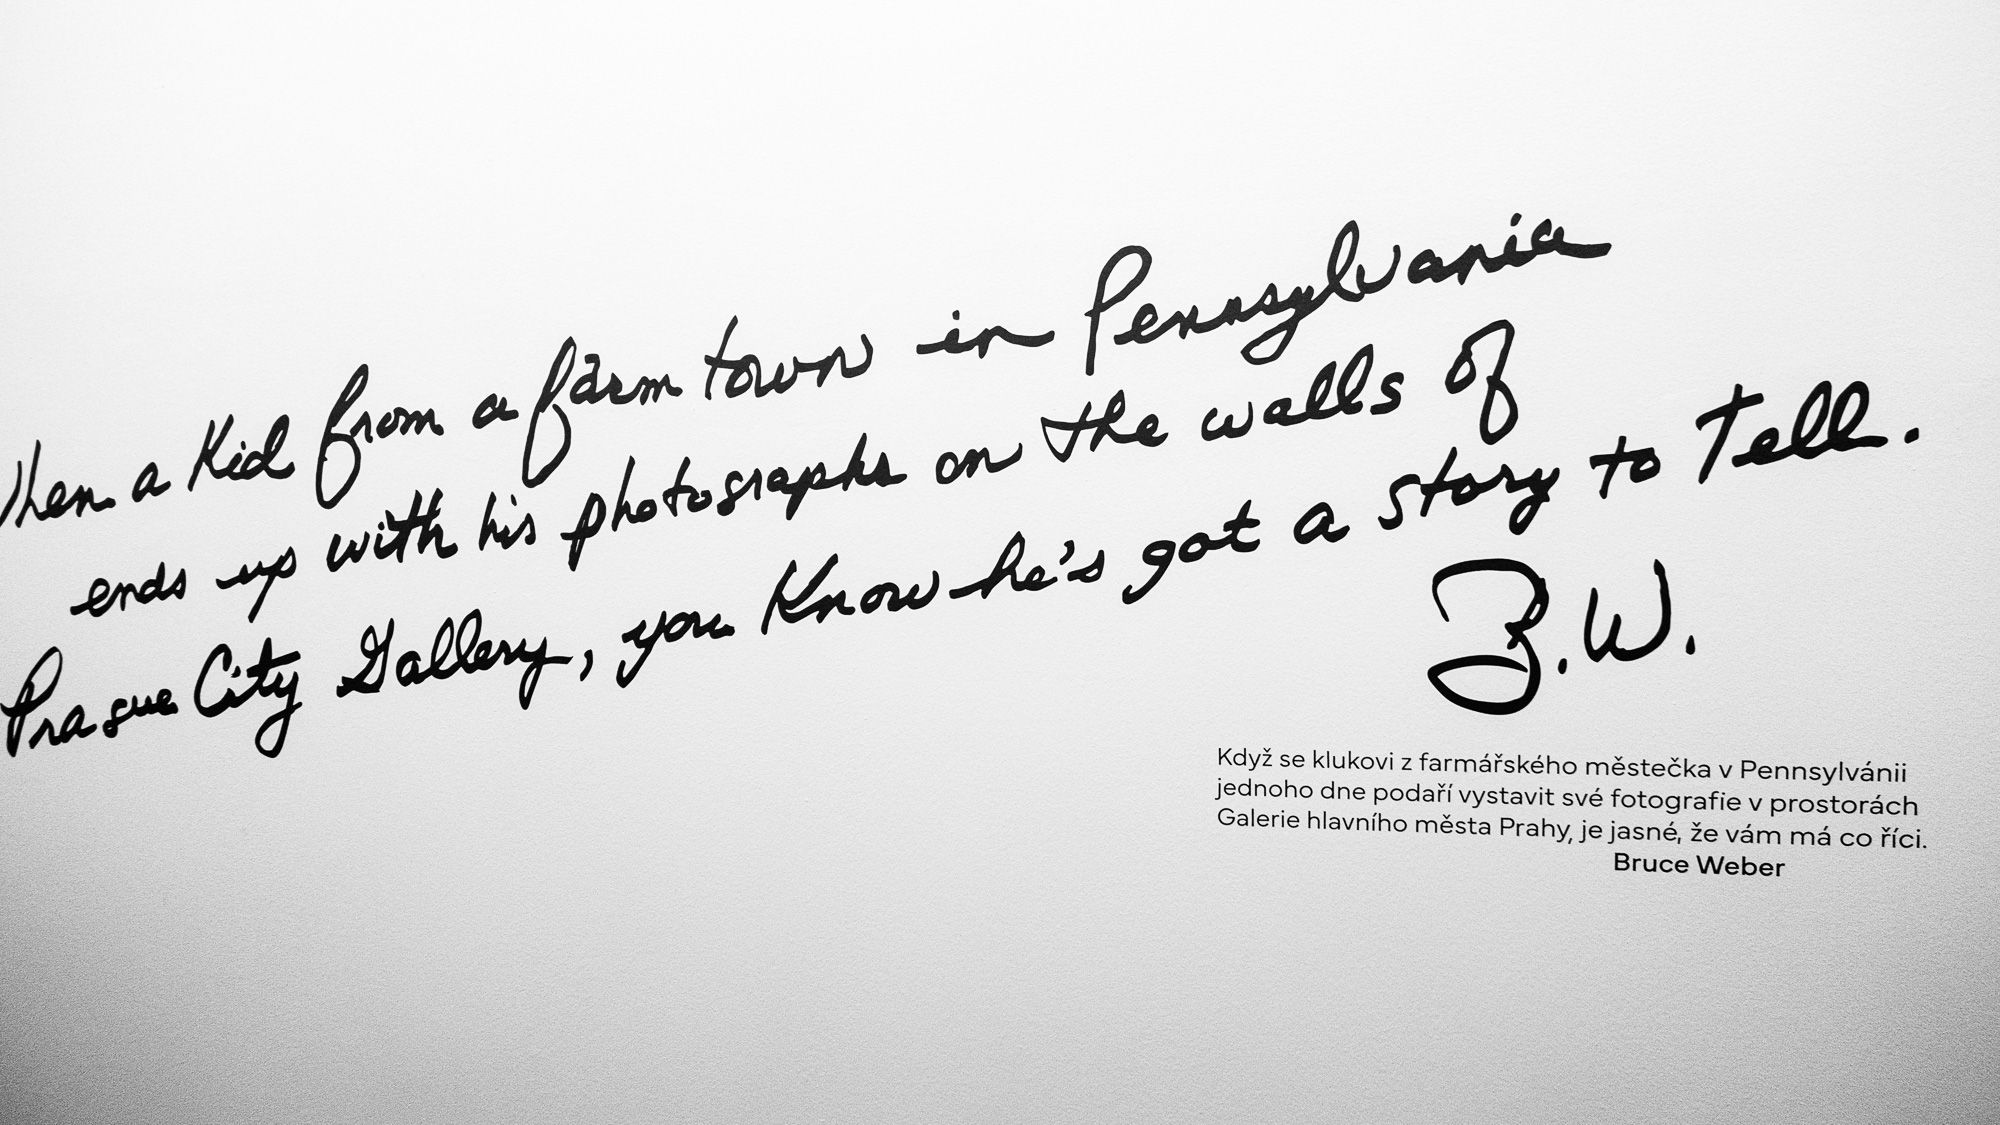 When a Kid from a farm town in Pennsylvania
ends up with his photographs on the walls of
Prague City Gallery, you Know he's got a story to Tell.
B.W.
Když se klukovi z farmářského městečka v Pennsylvánii
jednoho dne podaří vystavit své fotografie v prostorách
Galerie hlavního města Prahy, je jasné, že vám má co říci.
Bruce Weber